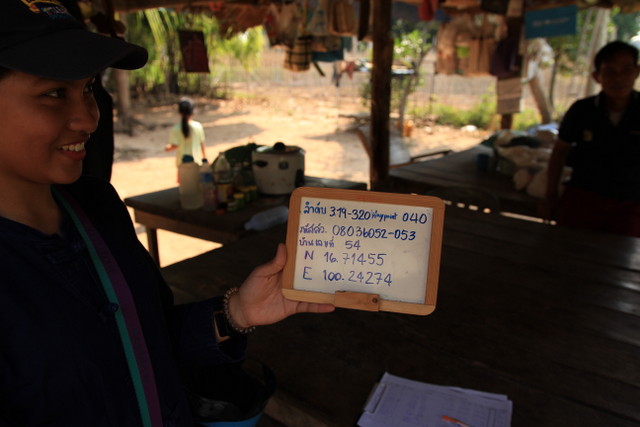 ลำดับ 319-320 Waypoint 040
รหัสสิ่ง. 08036052-053
บ้านเลขที่ 54
N 16.71455
E 100.24274